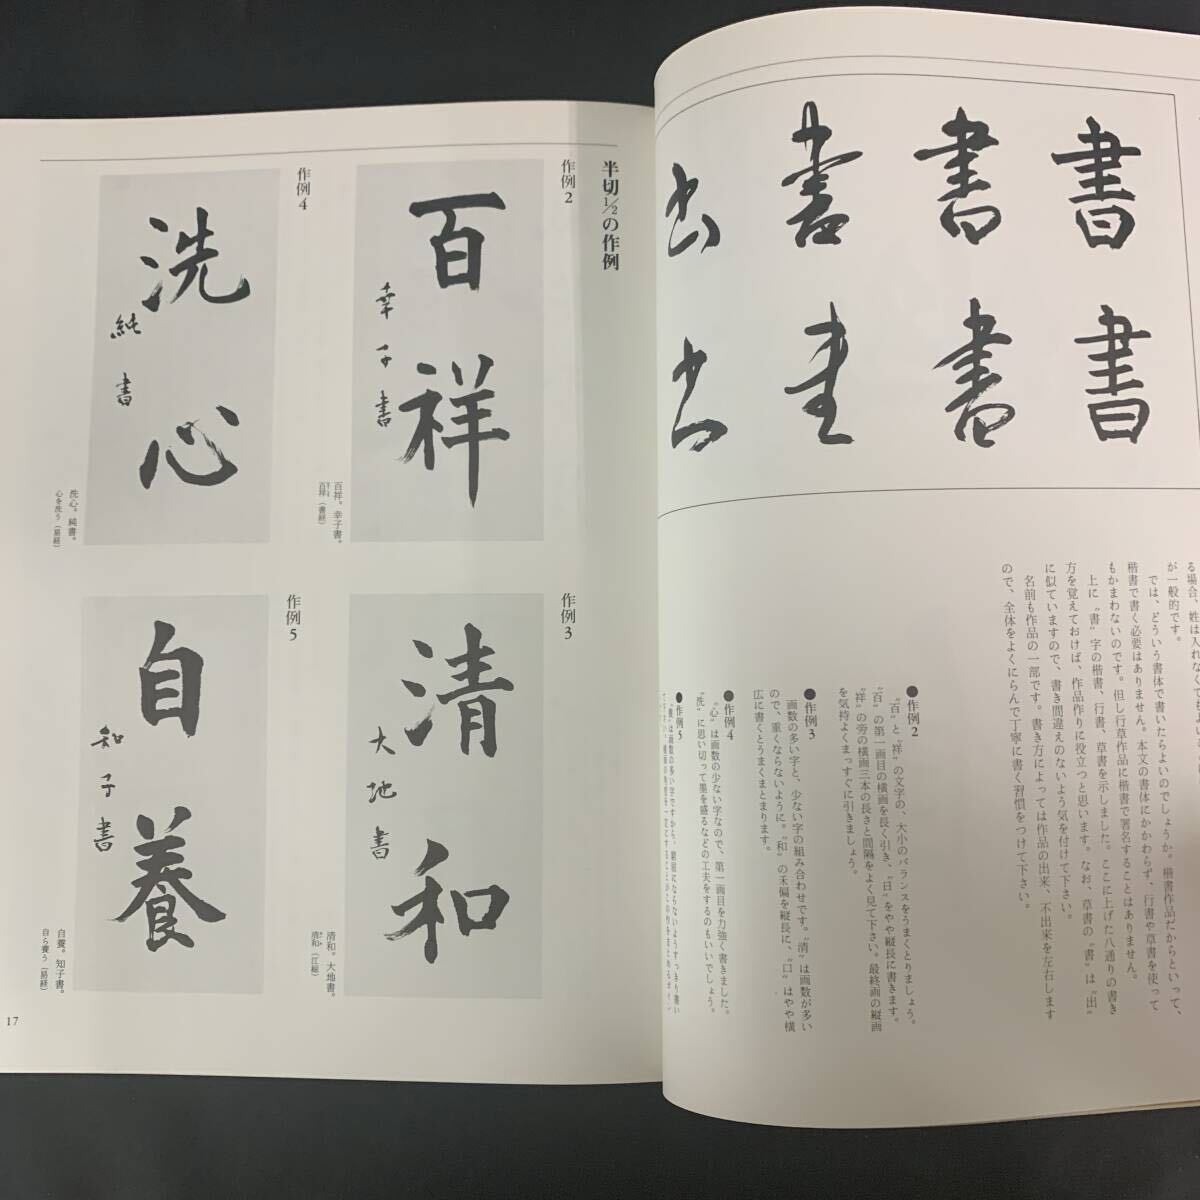 書
書
書
書
書
書
書
書
が一般的です。
では、どういう書体で書いたらよいのでしょうか。楷書作品だからといって、
楷書で書く必要はありません。本文の書体にかかわらず、行書や草書を使って
もかまわないのです。但し行草作品に楷書で署名することはありません。
上に〝書〟字の楷書、行書、草書を示しました。ここに上げた八通りの書き
方を覚えておけば、作品作りに役立つと思います。なお、草書の〝書〟は〝出〟
に似ていますので、書き間違えのないよう気を付けて下さい。
名前も作品の一部です。書き方によっては作品の出来、不出来を左右します
ので、全体をよくにらんで丁寧に書く習慣をつけて下さい。
●作例2
〝百〟と〝祥〟の文字の、大小のバランスをうまくとりましょう。
〝百〟の第一画目の横画を長く引き、〝日〟をやや縦長に書きます。
〝祥〟の旁の横画三本の長さと間隔をよく見て下さい。最終画の縦画
を気持よくまっすぐに引きましょう。
●作例3
画数の多い字と、少ない字の組み合わせです。〝清〟は画数が多い
ので、重くならないように。〝和〟の禾偏を縦長に、〝口〟はやや横
広に書くとうまくまとまります。
●作例4
〝心〟は画数の少ない字なので、第一画目を力強く書きました。
〝洗〟に思い切って墨を盛るなどの工夫をするのもいいでしょう。
●作例5
半切1/2の作例
作例2
百祥
幸子書
百祥。幸子書。
百祥（書経）
作例3
清和
大地書
清和。大地書。
清和（江総）
作例4
洗心
純書
洗心。純書。
心を洗う（易経）
作例5
自養
和子書
自養。知子書。
自ら養う（易経）
17